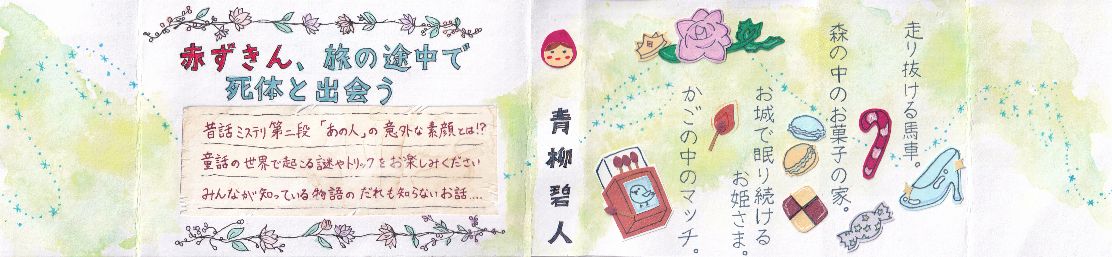 赤ずきん、旅の途中で
死体と出会う
昔話ミステリ第二段「あの人」の意外な素顔とは!?
童話の世界で起こる謎やトリックをお楽しみください
みんなが知っている物語のだれも知らないお話....
青柳碧人
走り抜ける馬車。
森の中のお菓子の家。
お城で眠り続ける
お姫さま。
かごの中のマッチ。